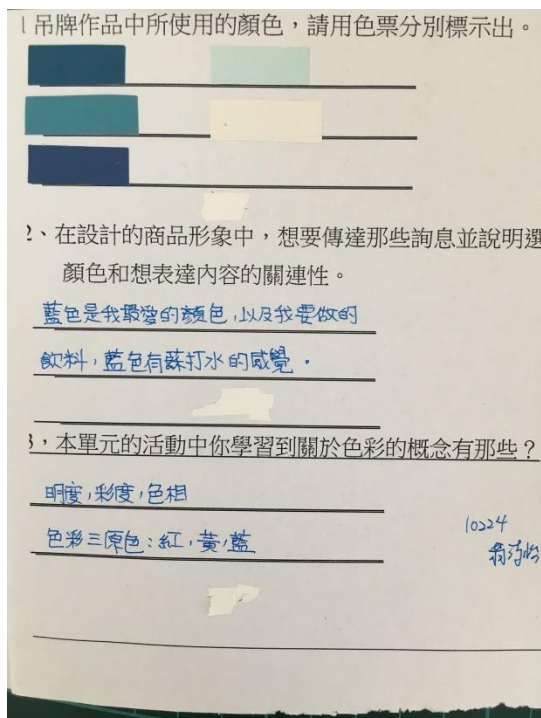 1 吊牌作品中所使用的顏色，請用色票分別標示出。
2、在設計的商品形象中，想要傳達那些詢息並說明選
顏色和想表達內容的關連性。
藍色是我最愛的顏色，以及我要做的
飲料，藍色有蘇打水的感覺。
3，本單元的活動中你學習到關於色彩的概念有那些？
明度，彩度，色相
色彩三原色：紅，黃，藍
10224